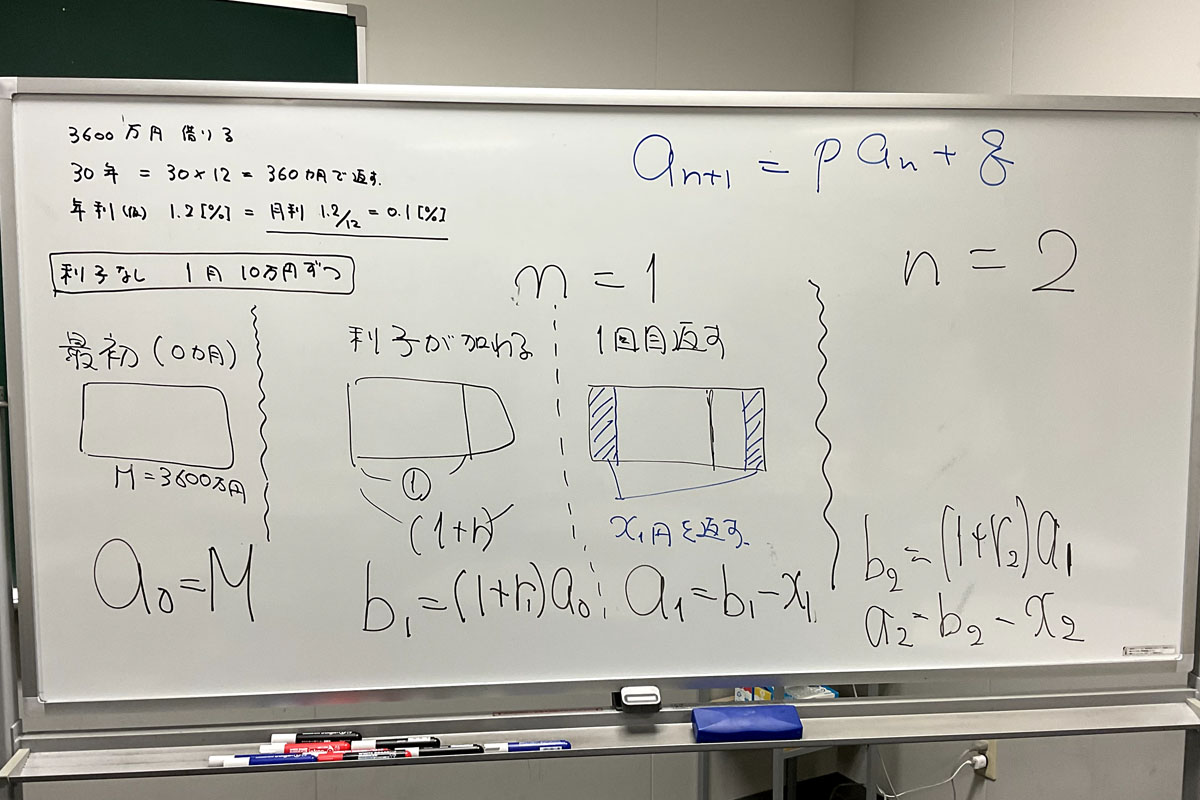 3600万円 借りる
30年 = 30×12 = 360カ月で返す.
年利(仮) 1.2[%] = 月利 1.2/12 = 0.1[%]
利子なし 1月 10万円ずつ
a_{n+1} = p a_n + q
n = 1
n = 2
最初(0カ月)
M=3600万円
a_0=M
利子が加わる
①
(1+r)
b_1=(1+r_1)a_0
1回目返す
x_1円を返す.
a_1=b_1-x_1
b_2=(1+r_2)a_1
a_2=b_2-x_2